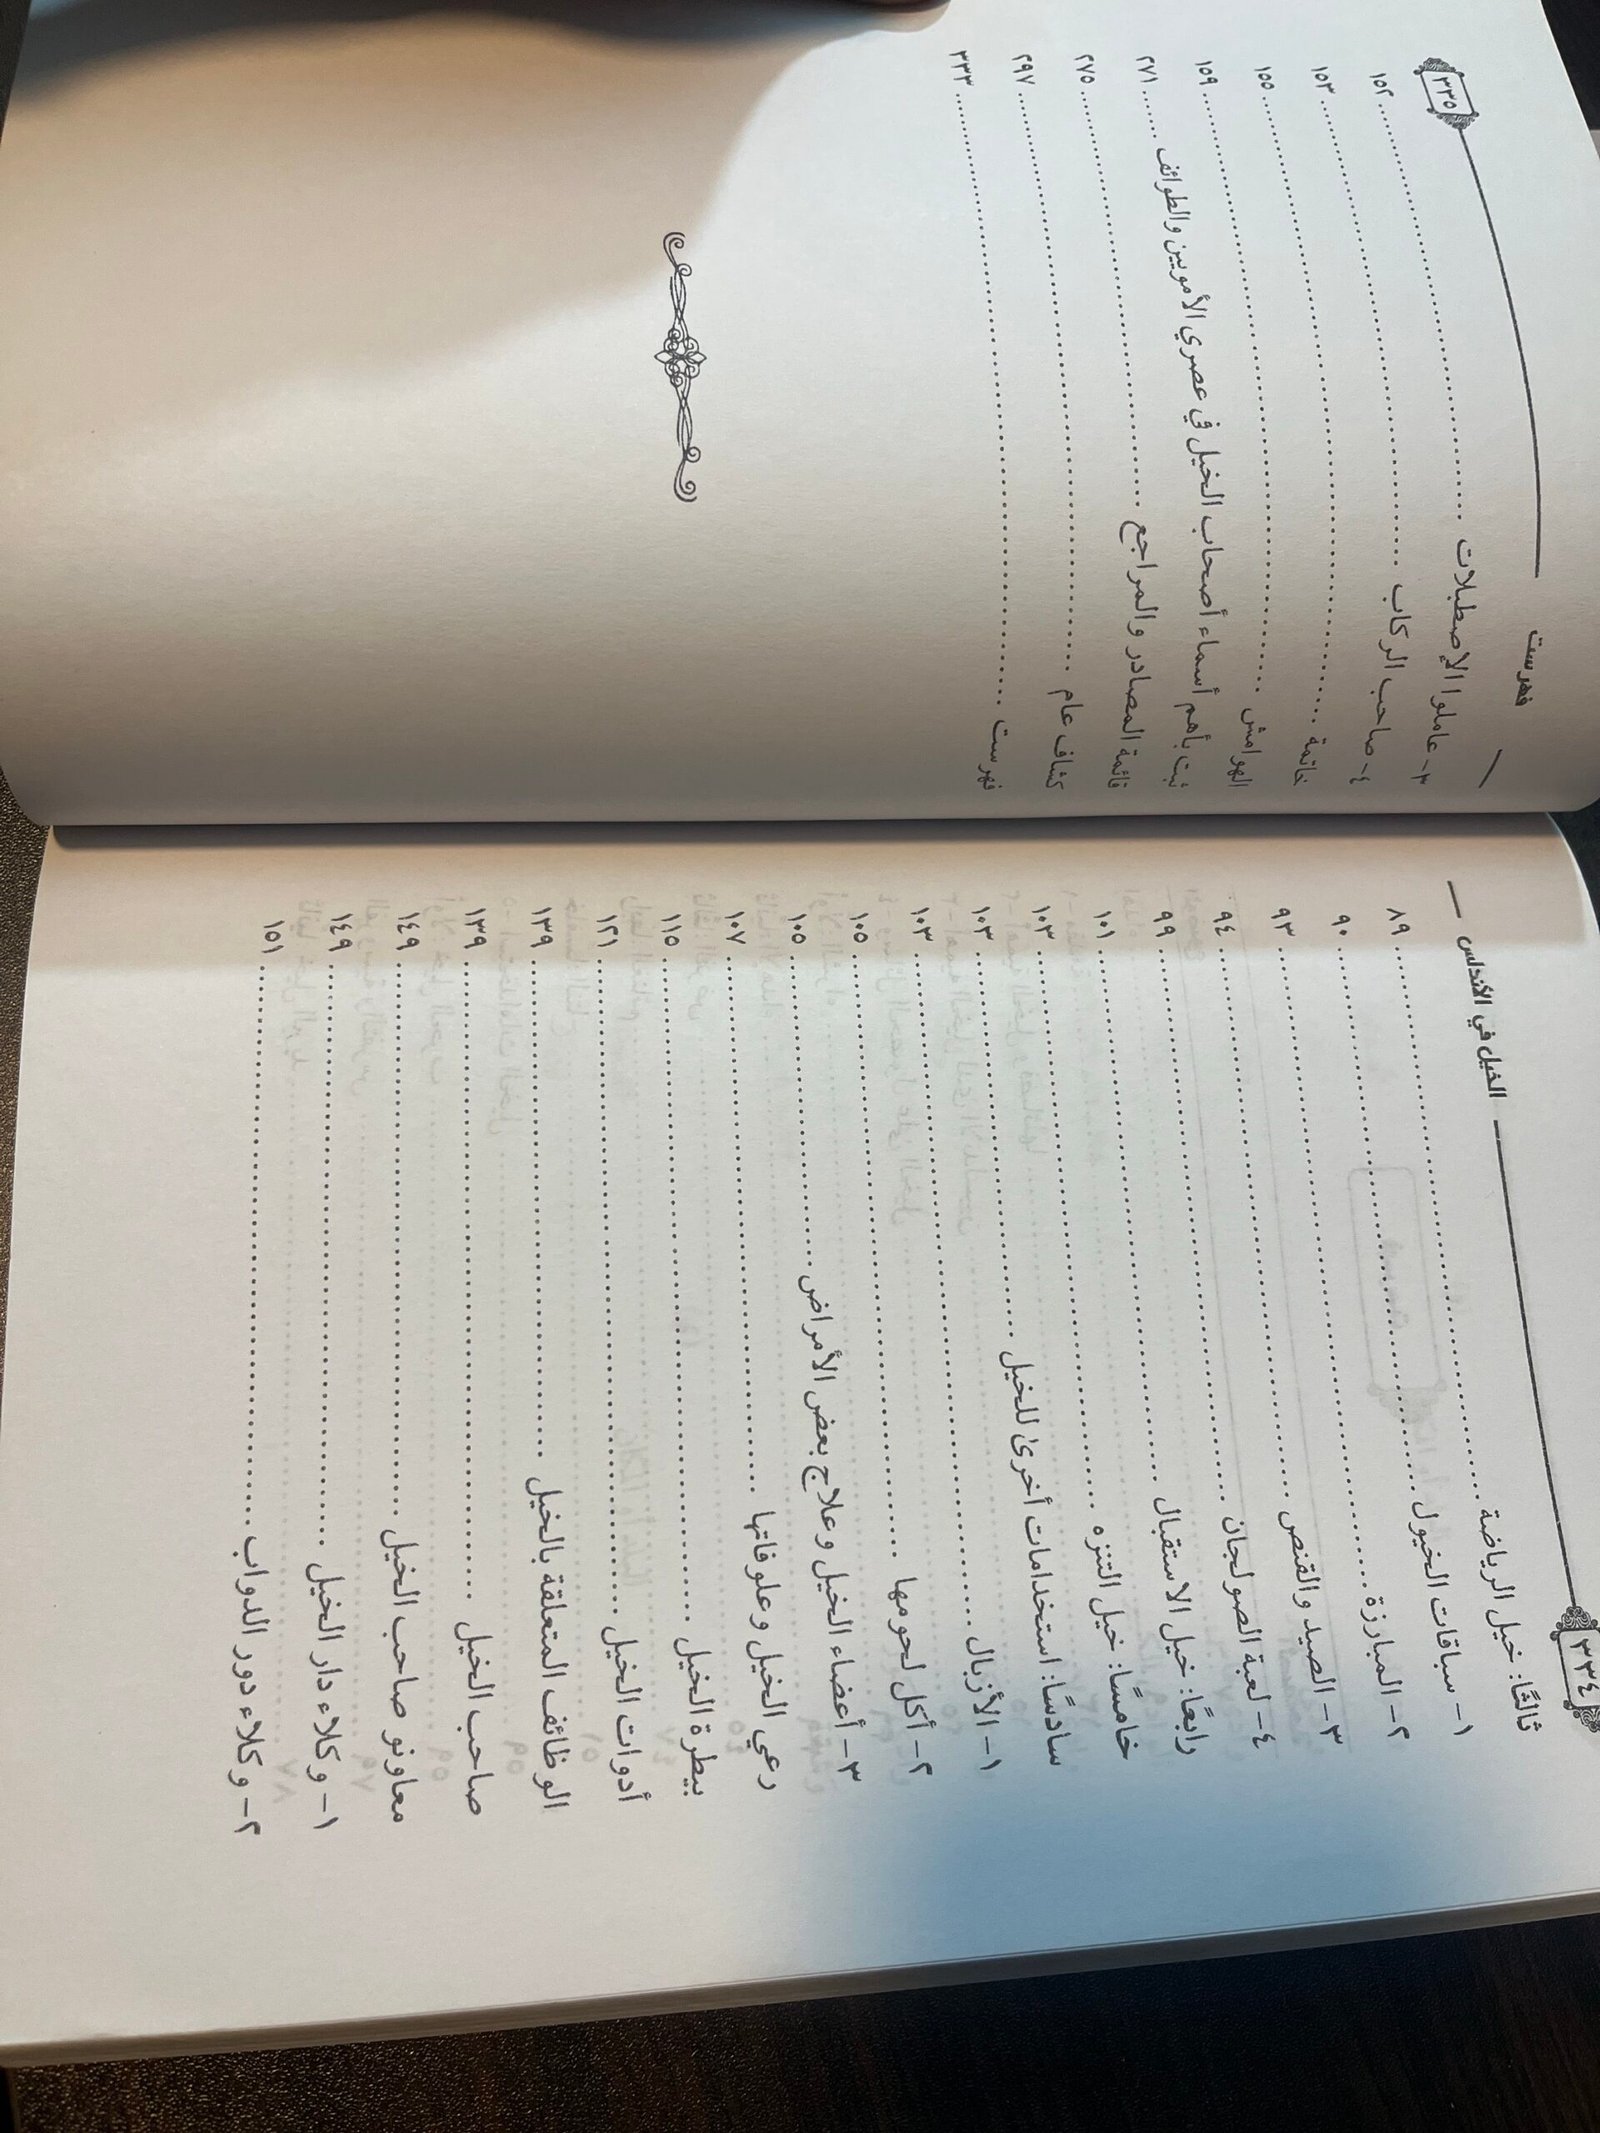 ٣٣٤ الخيل في الأندلس
ثالثًا: خيل الرياضة ........ ٨٩
١- سباقات الخيول ........ ٩٠
٢- المبارزة ........ ٩٣
٣- الصيد والقنص ........ ٩٤
٤- لعبة الصولجان ........ ٩٩
رابعًا: خيل الاستقبال ........ ١٠١
خامسًا: خيل التنزه ........ ١٠٣
سادسًا: استخدامات أخرىٰ للخيل ........ ١٠٣
١- الأزبال ........ ١٠٣
٢- أكل لحومها ........ ١٠٥
٣- أعضاء الخيل وعلاج بعض الأمراض ........ ١٠٥
رعي الخيل وعلوفاتها ........ ١٠٧
بيطرة الخيل ........ ١١٥
أدوات الخيل ........ ١٢١
الوظائف المتعلقة بالخيل ........ ١٣٩
صاحب الخيل ........ ١٣٩
معاونو صاحب الخيل ........ ١٤٩
١- وكلاء دار الخيل ........ ١٤٩
٢- وكلاء دور الدواب ........ ١٥١
فهرست ٣٣٥
٣- عاملوا الإصطبلات ........ ١٥٢
٤- صاحب الركاب ........ ١٥٣
خاتمة ........ ١٥٥
الهوامش ........ ١٥٩
ثبت بأهم أسماء أصحاب الخيل في عصري الأمويين والطوائف ........ ٢٧١
قائمة المصادر والمراجع ........ ٢٧٥
كشاف عام ........ ٢٩٧
فهرست ........ ٣٣٣